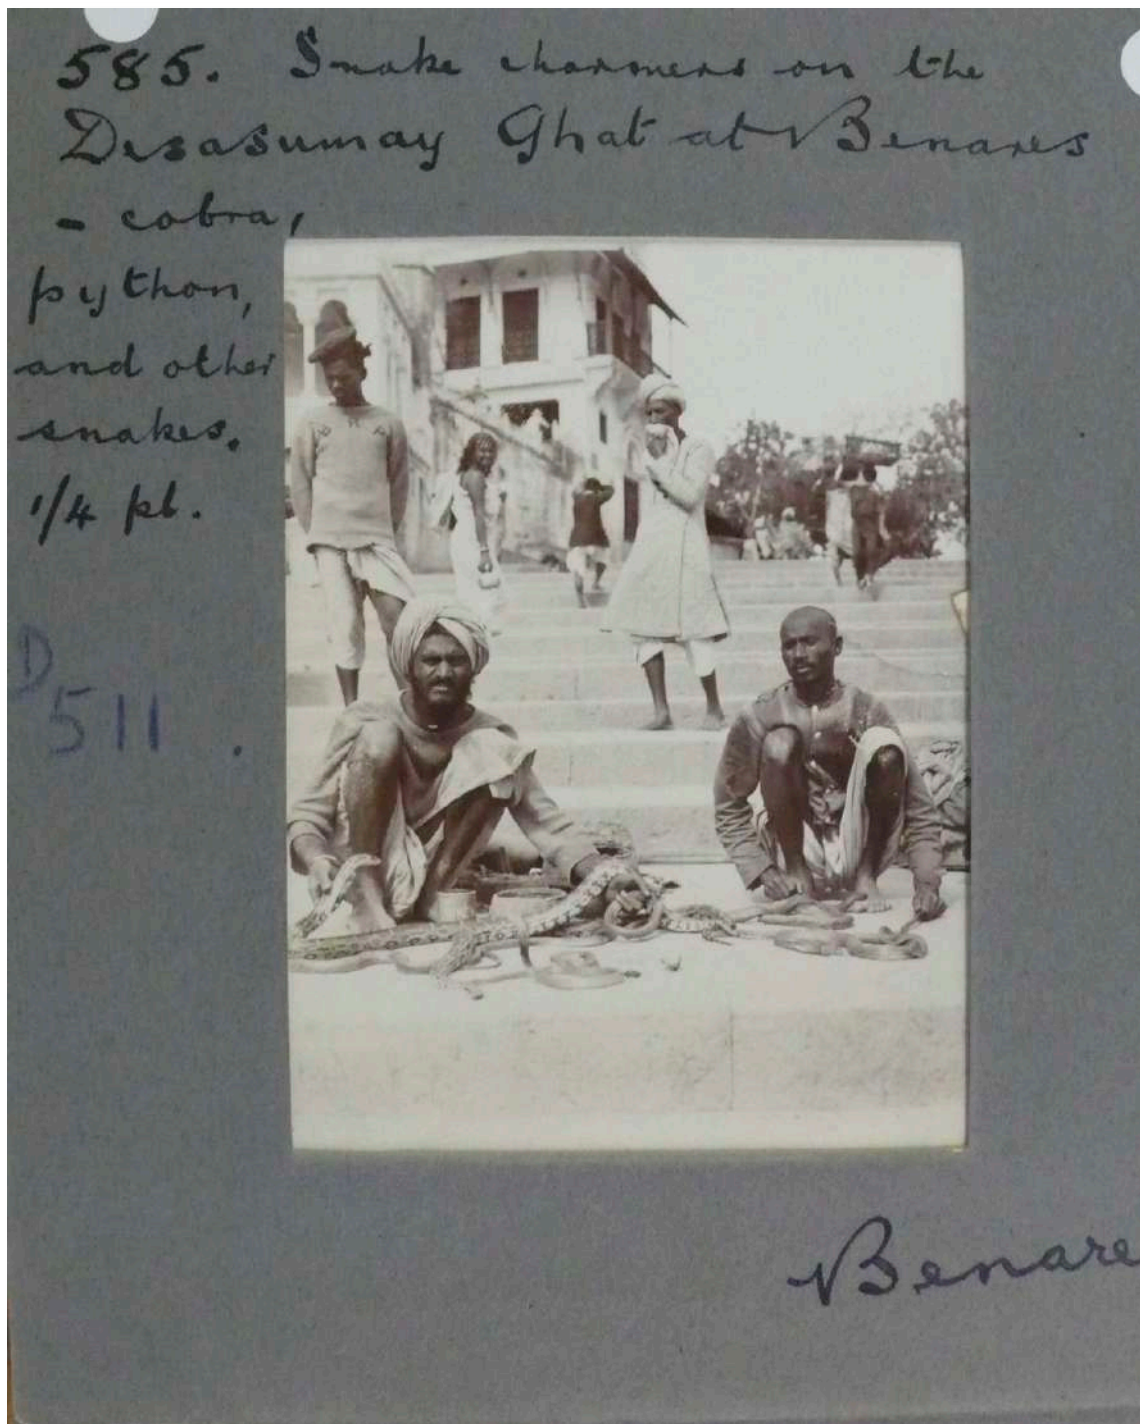 585. Snake charmers on the
Desasumay Ghat at Benares
- cobra,
python,
and other
snakes.
1/4 pl.
D
511.
Benare